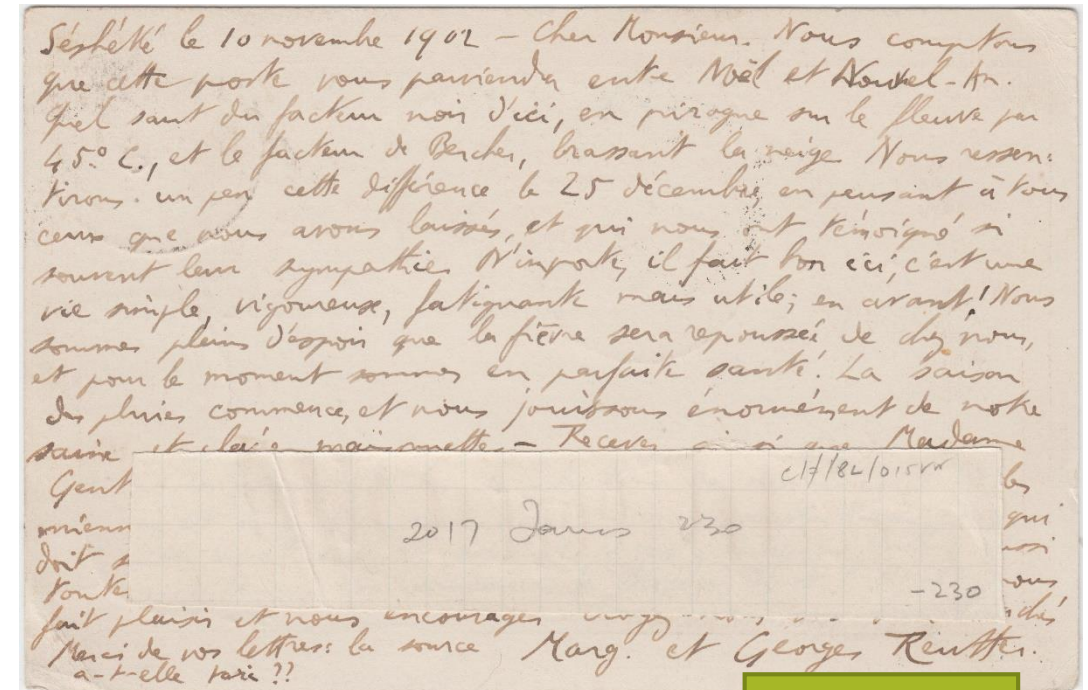 Séshéké le 10 novembre 1902 – Cher Monsieur. Nous comptons
que cette poste vous parviendra entre Noël et Nouvel-An.
Quel saut du facteur noir d'ici, en pirogue sur le fleuve par
45° C., et le facteur de Bercher, brassant la neige. Nous ressen-
tirons un peu cette différence le 25 décembre en pensant à tous
ceux que nous avons laissés, et qui nous ont témoigné si
souvent leur sympathie. N'importe, il fait bon ici; c'est une
vie simple, vigoureuse, fatiguante mais utile; en avant! Nous
sommes pleins d'espoir que la fièvre sera repoussée de chez nous,
et pour le moment sommes en parfaite santé. La saison
des pluies commence, et nous jouissons énormément de notre
saine et maisonnette – Recevez ainsi que Madame
Gent les
mienn qui
doit
toutes nous
fait plaisir et nous encourage
Merci de vos lettres: la source Marg. et Georges Reutter.
a-t-elle tari ??
c/7/82/015vv
2017 230
-230